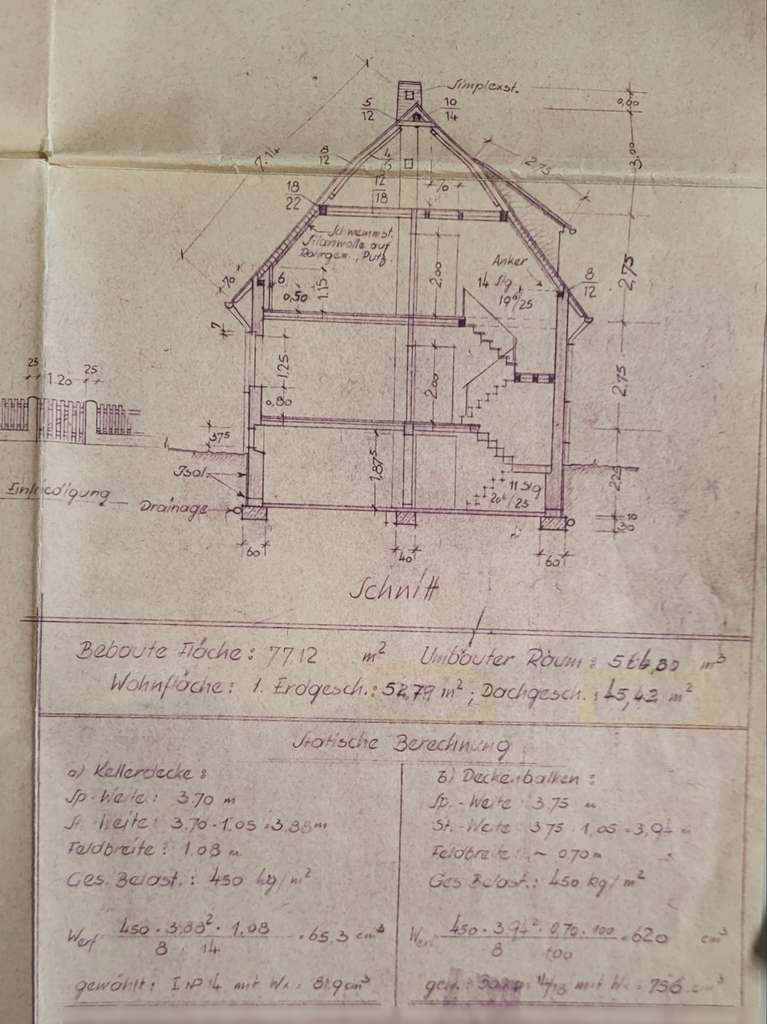 Simplexst.
5/12
10/14
0,60
8/12
4/6
7.14
3,00
2,75
12/18
70
18/22
Schwemmst.
Silanwolle auf
Rohrgew., Putz.
Anker
14 Stg
19⁶/25
8/12
2,75
70
6
0,50
1.15
2.00
7
25
1.20
25
1.25
0.80
2.00
2,75
375
Isol.
1,87⁵
11 Stg
20⁴/25
2.25
Einfriedigung
Drainage
10
30
60
40
60
Schnitt
Beboute Fläche: 77.12 m² Umbauter Raum: m³
Wohnfläche: 1. Erdgesch.: 52,79 m²; Dachgesch.: 45,42 m²
Statische Berechnung
a) Kellerdecke:
Sp.-Weite: 3.70 m
St.-Weite: 3.70 · 1.05 = 3.88 m
Feldbreite: 1.08 m
Ges. Belast.: 450 kg/m²
Werf 450 · 3.88² · 1.08 / 8 · 14 = 65.3 cm³
gewählt: I NP 14 mit Wx = 81.9 cm³
b) Deckenbalken:
Sp.-Weite: 3.75 m
St.-Weite: 3.75 · 1,05 = 3,94 m
Feldbreite: ~ 0.70 m
Ges. Belast.: 450 kg/m²
Werf 450 · 3.94² · 0,70 · 100 / 8 100 = 620 cm³
gew.: mit Wx = 756 cm³